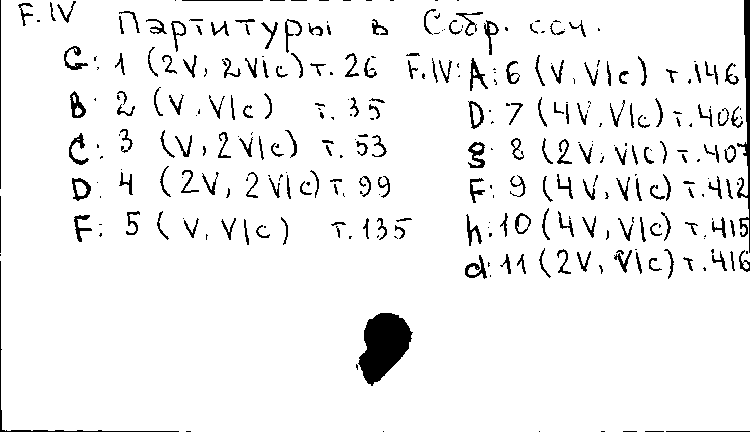 F. IV Партитуры в Собр. соч.
G: 1 (2V, 2Vlc) т. 26
B: 2 (V, Vlc) т. 35
C: 3 (V, 2Vlc) т. 53
D: 4 (2V, 2Vlc) т. 99
F: 5 (V, Vlc) т. 135
F. IV: A: 6 (V, Vlc) т. 146
D: 7 (4V, Vlc) т. 406
g: 8 (2V, Vlc) т. 407
F: 9 (4V, Vlc) т. 412
h: 10 (4V, Vlc) т. 415
d: 11 (2V, Vlc) т. 416